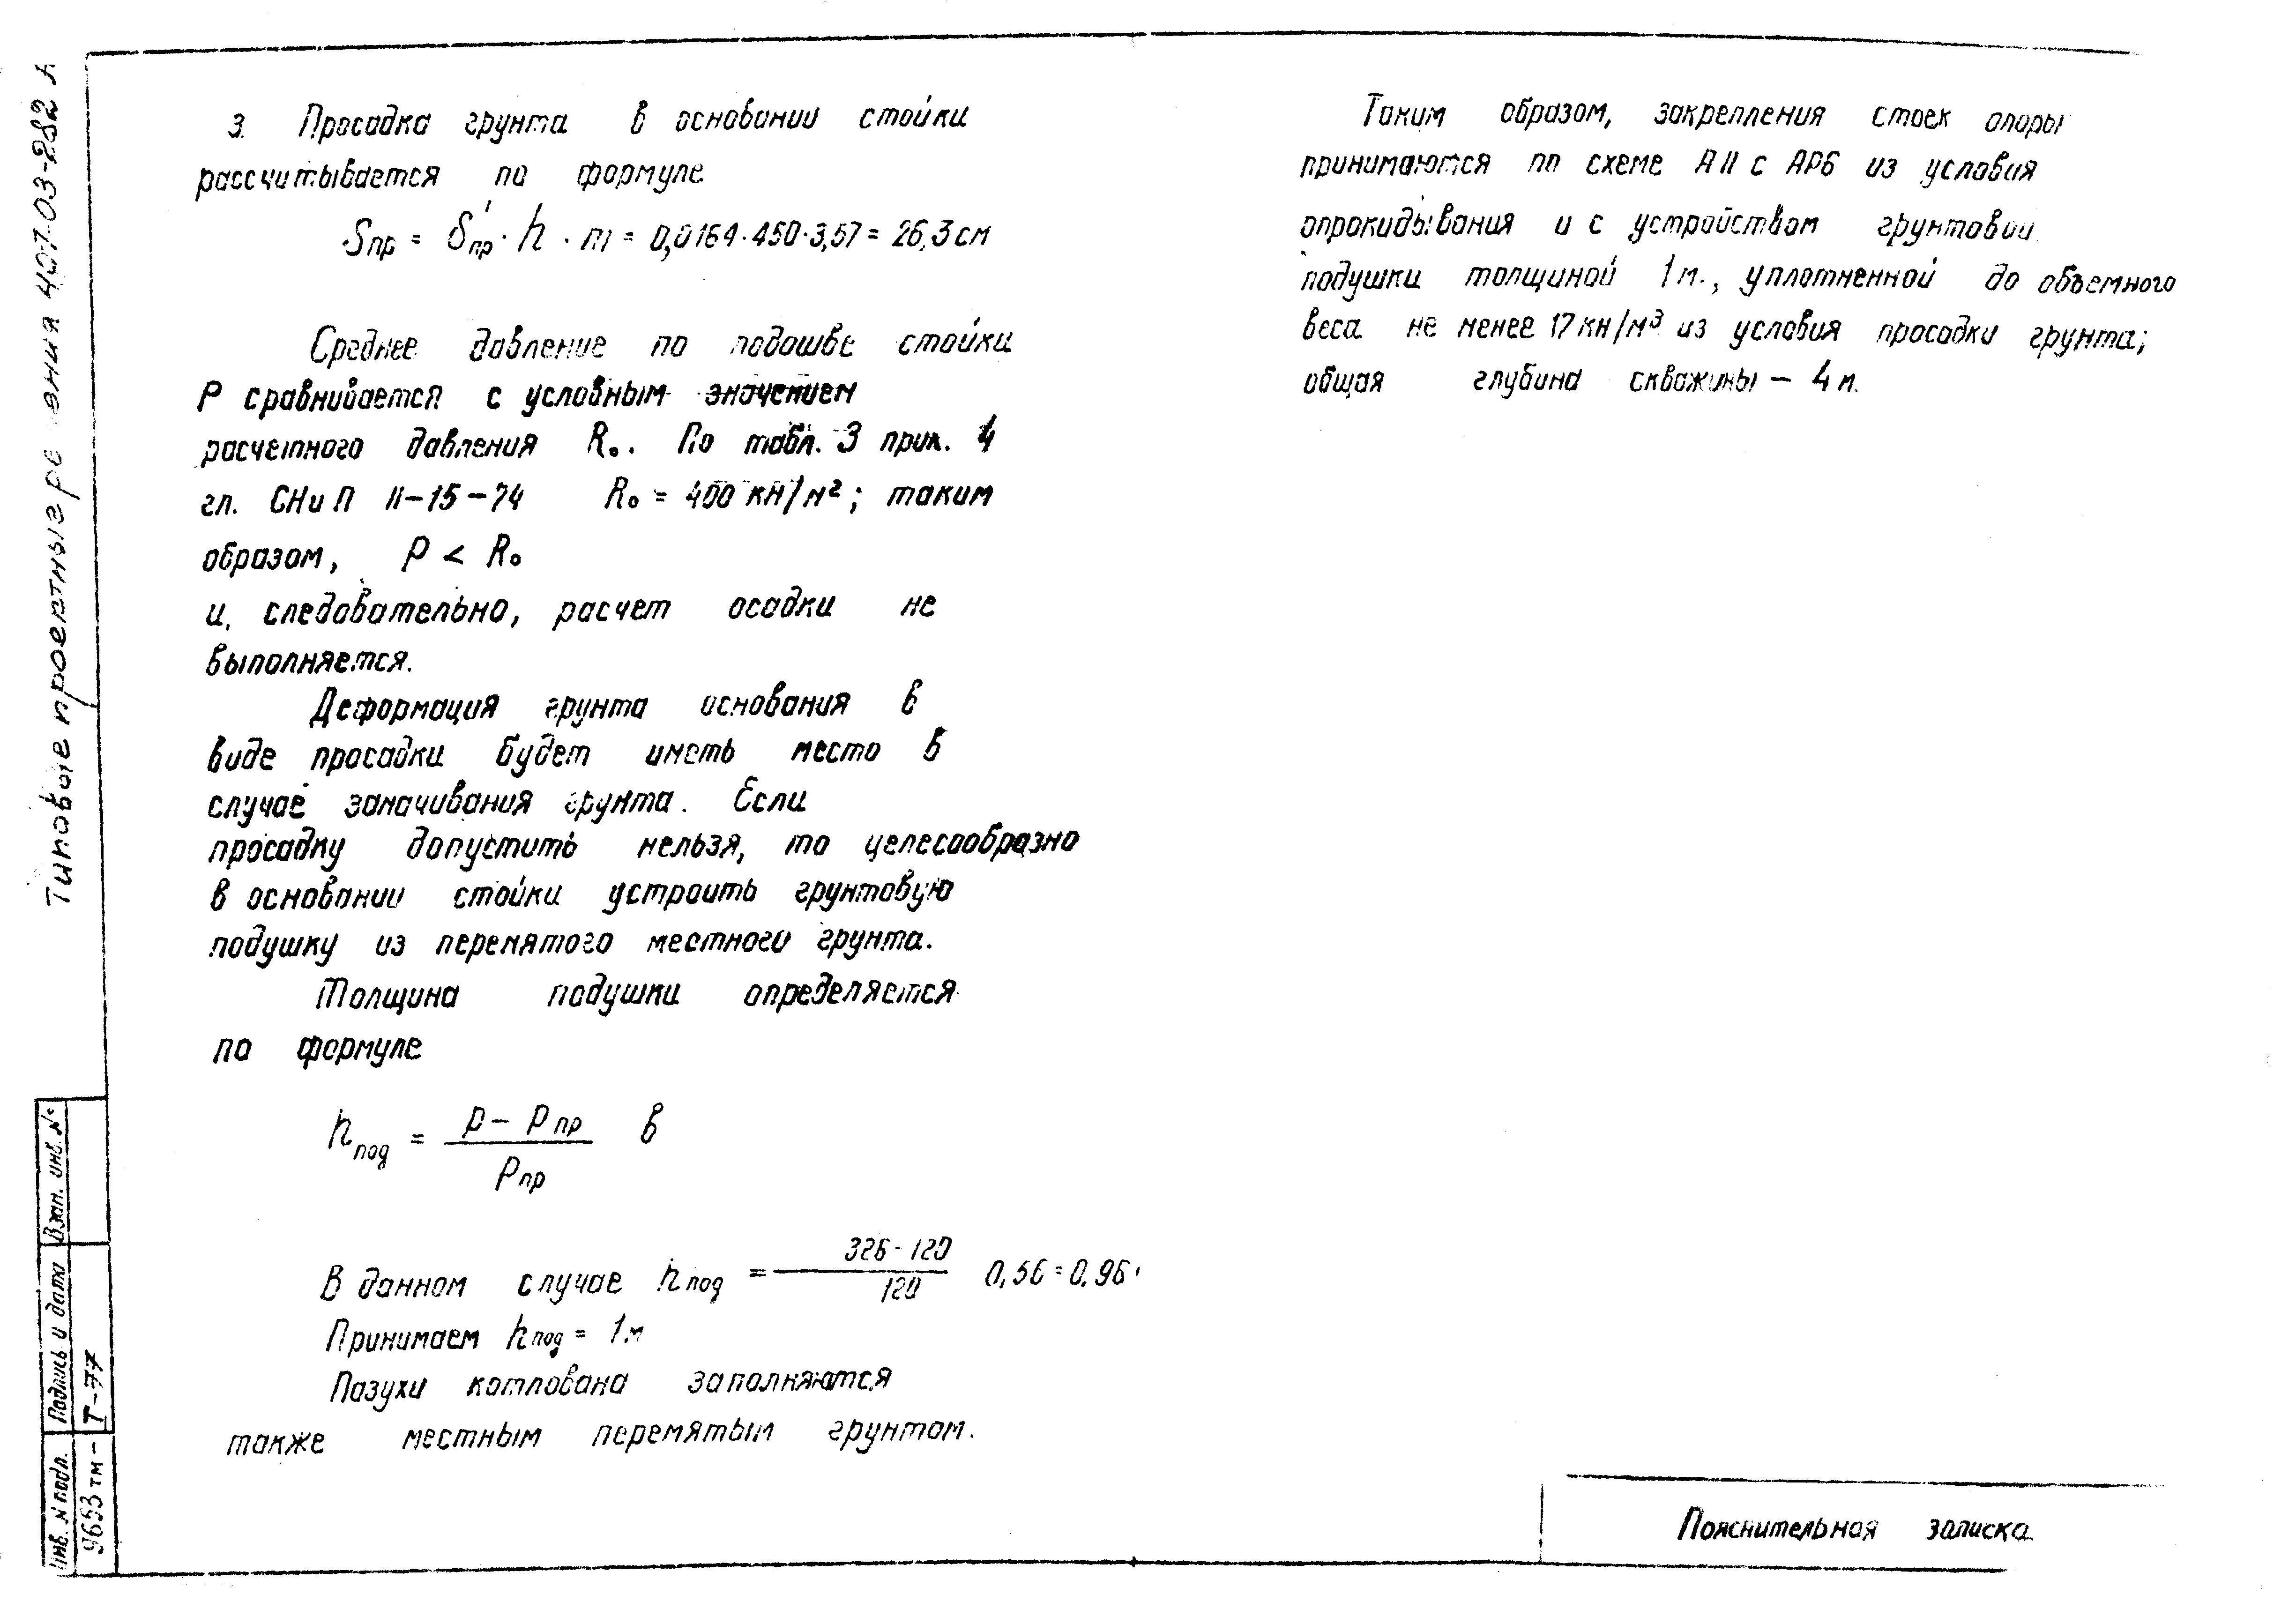 3. Просадка грунта в основании стойки
рассчитывается по формуле
Sпр = δ'пр · h · m = 0,0164·450·3,57 = 26,3 см
Среднее давление по подошве стойки
P сравнивается с условным значением
расчетного давления R₀. По табл. 3 прил. 4
гл. СНиП II-15-74 R₀ = 400 кН/м²; таким
образом, P < R₀
и, следовательно, расчет осадки не
выполняется.
Деформация грунта основания в
виде просадки будет иметь место в
случае замачивания грунта. Если
просадку допустить нельзя, то целесообразно
в основании стойки устроить грунтовую
подушку из перемятого местного грунта.
Толщина подушки определяется
по формуле
hпод = (P - Pпр) / Pпр в
В данном случае hпод = (326 - 120) / 120 0,56 = 0,96
Принимаем hпод = 1м
Пазухи котлована заполняются
также местным перемятым грунтом.
Таким образом, закрепления стоек опоры
принимаются по схеме А II с АР6 из условия
опрокидывания и с устройством грунтовой
подушки толщиной 1м., уплотненной до объемного
веса не менее 17 кн/м³ из условия просадки грунта;
общая глубина скважины – 4м.
Пояснительная записка
Типовые проектные ре ения 407-03-282
Взам. инв. №
Подпись и дата
Инв. N подл.
9653 тм – Т-77